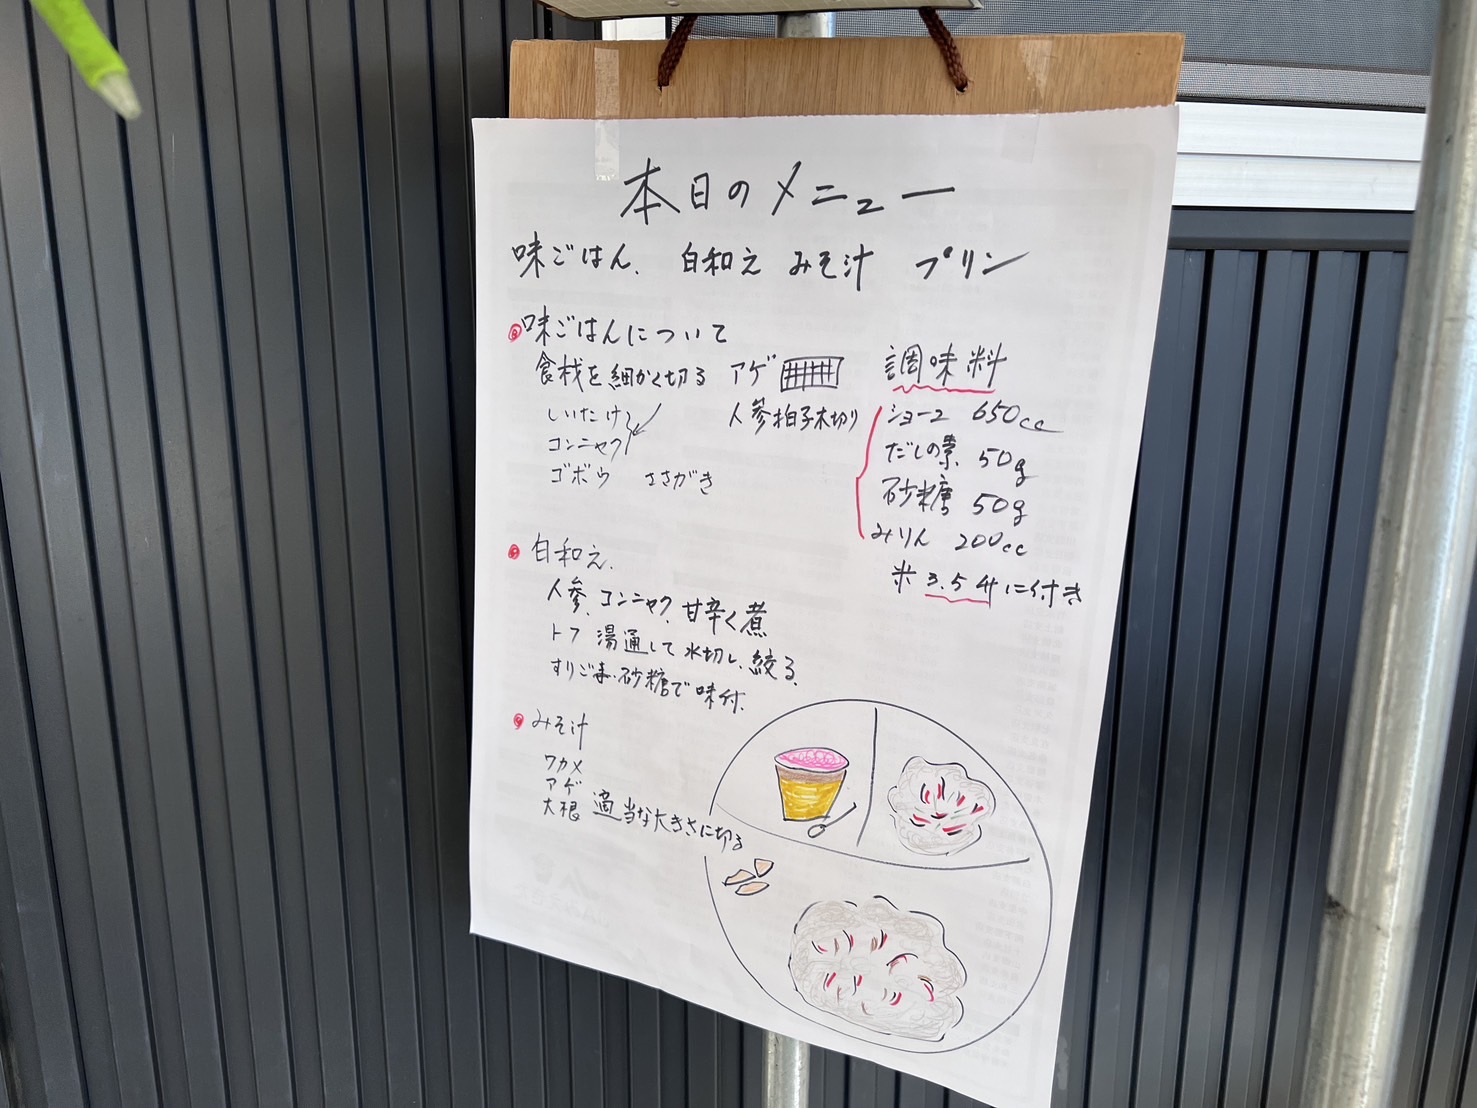 本日のメニュー
味ごはん、 白和え みそ汁 プリン
味ごはんについて
食材を細かく切る アゲ
しいたけ
コンニャク
ゴボウ ささがき
人参拍子木切り
調味料
ショーユ 650cc
だしの素 50g
砂糖 50g
みりん 200cc
米 3.5升に付き
白和え、
人参、コンニャク、甘辛く煮
トフ 湯通して水切し、絞る、
すりごま・砂糖で味付、
みそ汁
ワカメ
アゲ
大根 適当な大きさに切る